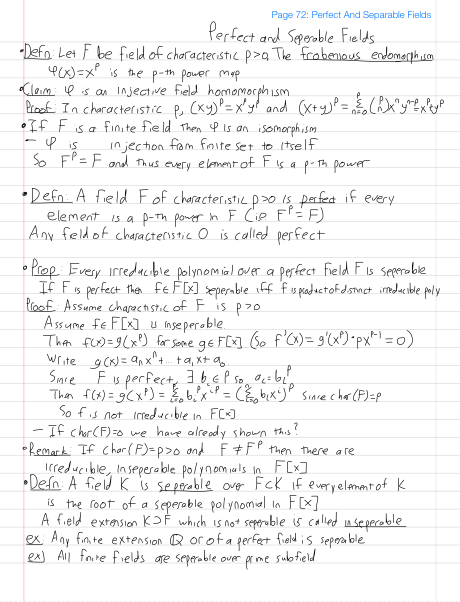 Page 72: Perfect And Separable Fields
Perfect and Seperable Fields
•Defn: Let F be field of characteristic p>0. The frobenious endomorphism
φ(x)=x^p is the p-th power map
•Claim: φ is an injective field homomorphism
Proof: In characteristic p, (xy)^p=x^p y^p and (x+y)^p = Σ_{n=0}^{p} (p n) x^n y^{n-p} = x^p+y^p
•If F is a finite field then φ is an isomorphism
– φ is injection from finite set to itself
So F^p = F and thus every element of F is a p-th power
•Defn: A field F of characteristic p>0 is perfect if every
element is a p-th power in F (ie F^p = F)
Any field of characteristic 0 is called perfect
•Prop: Every irreducible polynomial over a perfect field F is seperable
If F is perfect then f∈F[x] seperable iff f is product of distinct irreducible poly
Proof: Assume charactistic of F is p>0
Assume f∈F[x] is inseperable
Then f(x)=g(x^p) for some g∈F[x] (So f'(x)=g'(x^p)·px^{p-1}=0)
Write g(x)=a_n x^n+...+a_1 x+a_0
Since F is perfect, ∃ b_i∈F so a_i=b_i^p
Then f(x)=g(x^p)=Σ_{i=0}^{n} b_i^p x^{ip} = (Σ_{i=0}^{n} b_i x^i)^p since char(F)=p
So f is not irreducible in F[x]
– If char(F)=0 we have already shown this?
•Remark: If char(F)=p>0 and F≠F^p then there are
irreducible, inseperable polynomials in F[x]
•Defn: A field K is seperable over F⊂K if every element of K
is the root of a seperable polynomial in F[x]
A field extension K⊃F which is not seperable is called inseperable
ex: Any finite extension Q or of a perfect field is seperable
ex) All finite fields are seperable over prime subfield